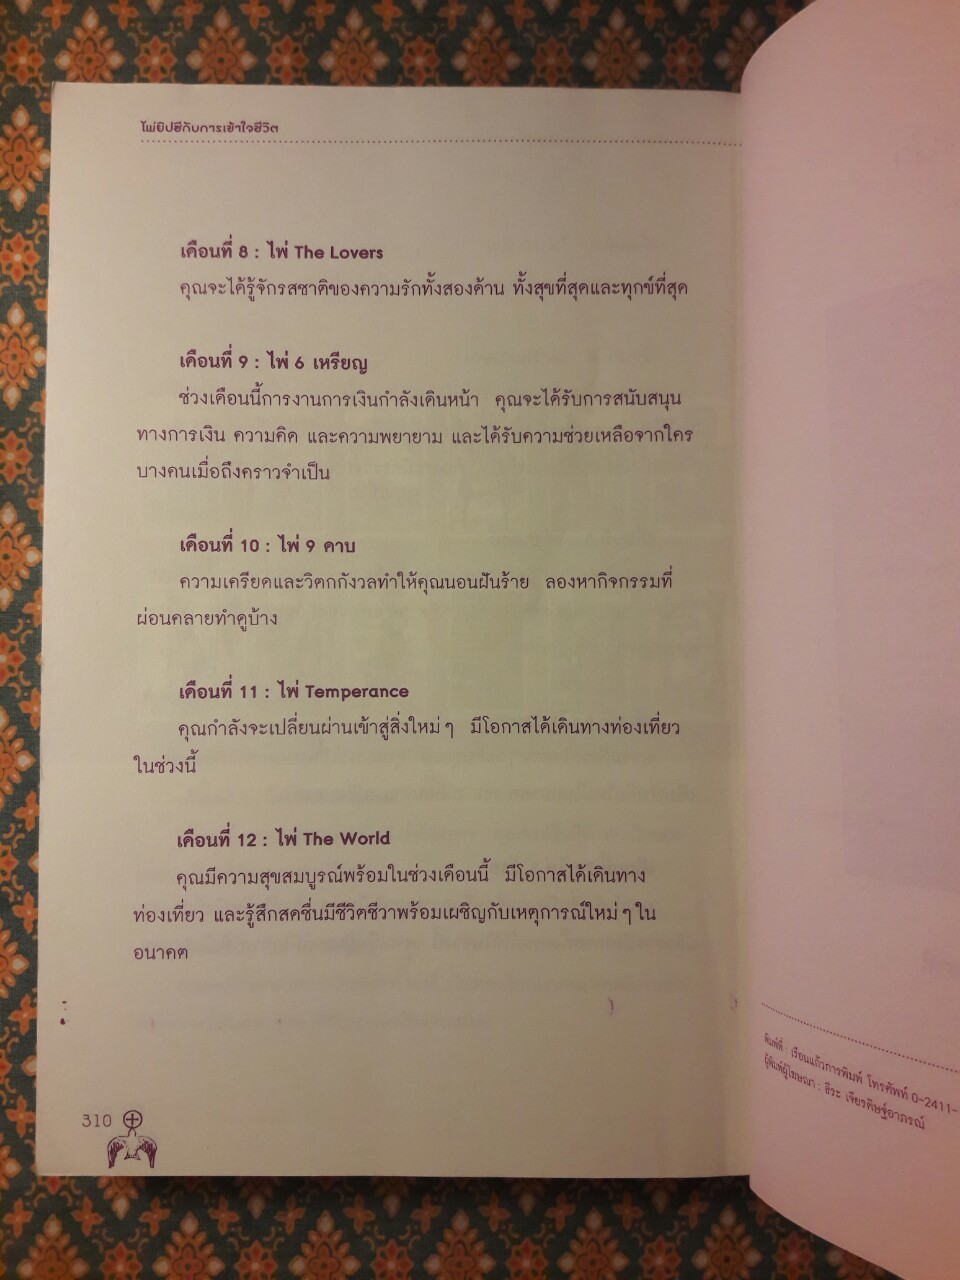 ไพ่ยิปซีกับการเข้าใจชีวิต
เดือนที่ 8 : ไพ่ The Lovers
คุณจะได้รู้จักรสชาติของความรักทั้งสองด้าน ทั้งสุขที่สุดและทุกข์ที่สุด
เดือนที่ 9 : ไพ่ 6 เหรียญ
ช่วงเดือนนี้การงานการเงินกำลังเดินหน้า คุณจะได้รับการสนับสนุน
ทางการเงิน ความคิด และความพยายาม และได้รับความช่วยเหลือจากใคร
บางคนเมื่อถึงคราวจำเป็น
เดือนที่ 10 : ไพ่ 9 ดาบ
ความเครียดและวิตกกังวลทำให้คุณนอนฝันร้าย ลองหากิจกรรมที่
ผ่อนคลายทำดูบ้าง
เดือนที่ 11 : ไพ่ Temperance
คุณกำลังจะเปลี่ยนผ่านเข้าสู่สิ่งใหม่ๆ มีโอกาสได้เดินทางท่องเที่ยว
ในช่วงนี้
เดือนที่ 12 : ไพ่ The World
คุณมีความสุขสมบูรณ์พร้อมในช่วงเดือนนี้ มีโอกาสได้เดินทาง
ท่องเที่ยว และรู้สึกสดชื่นมีชีวิตชีวาพร้อมเผชิญกับเหตุการณ์ใหม่ๆ ใน
อนาคต
310
พิมพ์ที่ : เรือนแก้วการพิมพ์ โทรศัพท์ 0-2411-
ผู้พิมพ์ผู้โฆษณา : ธีระ เจียรดิษฐ์อาภรณ์